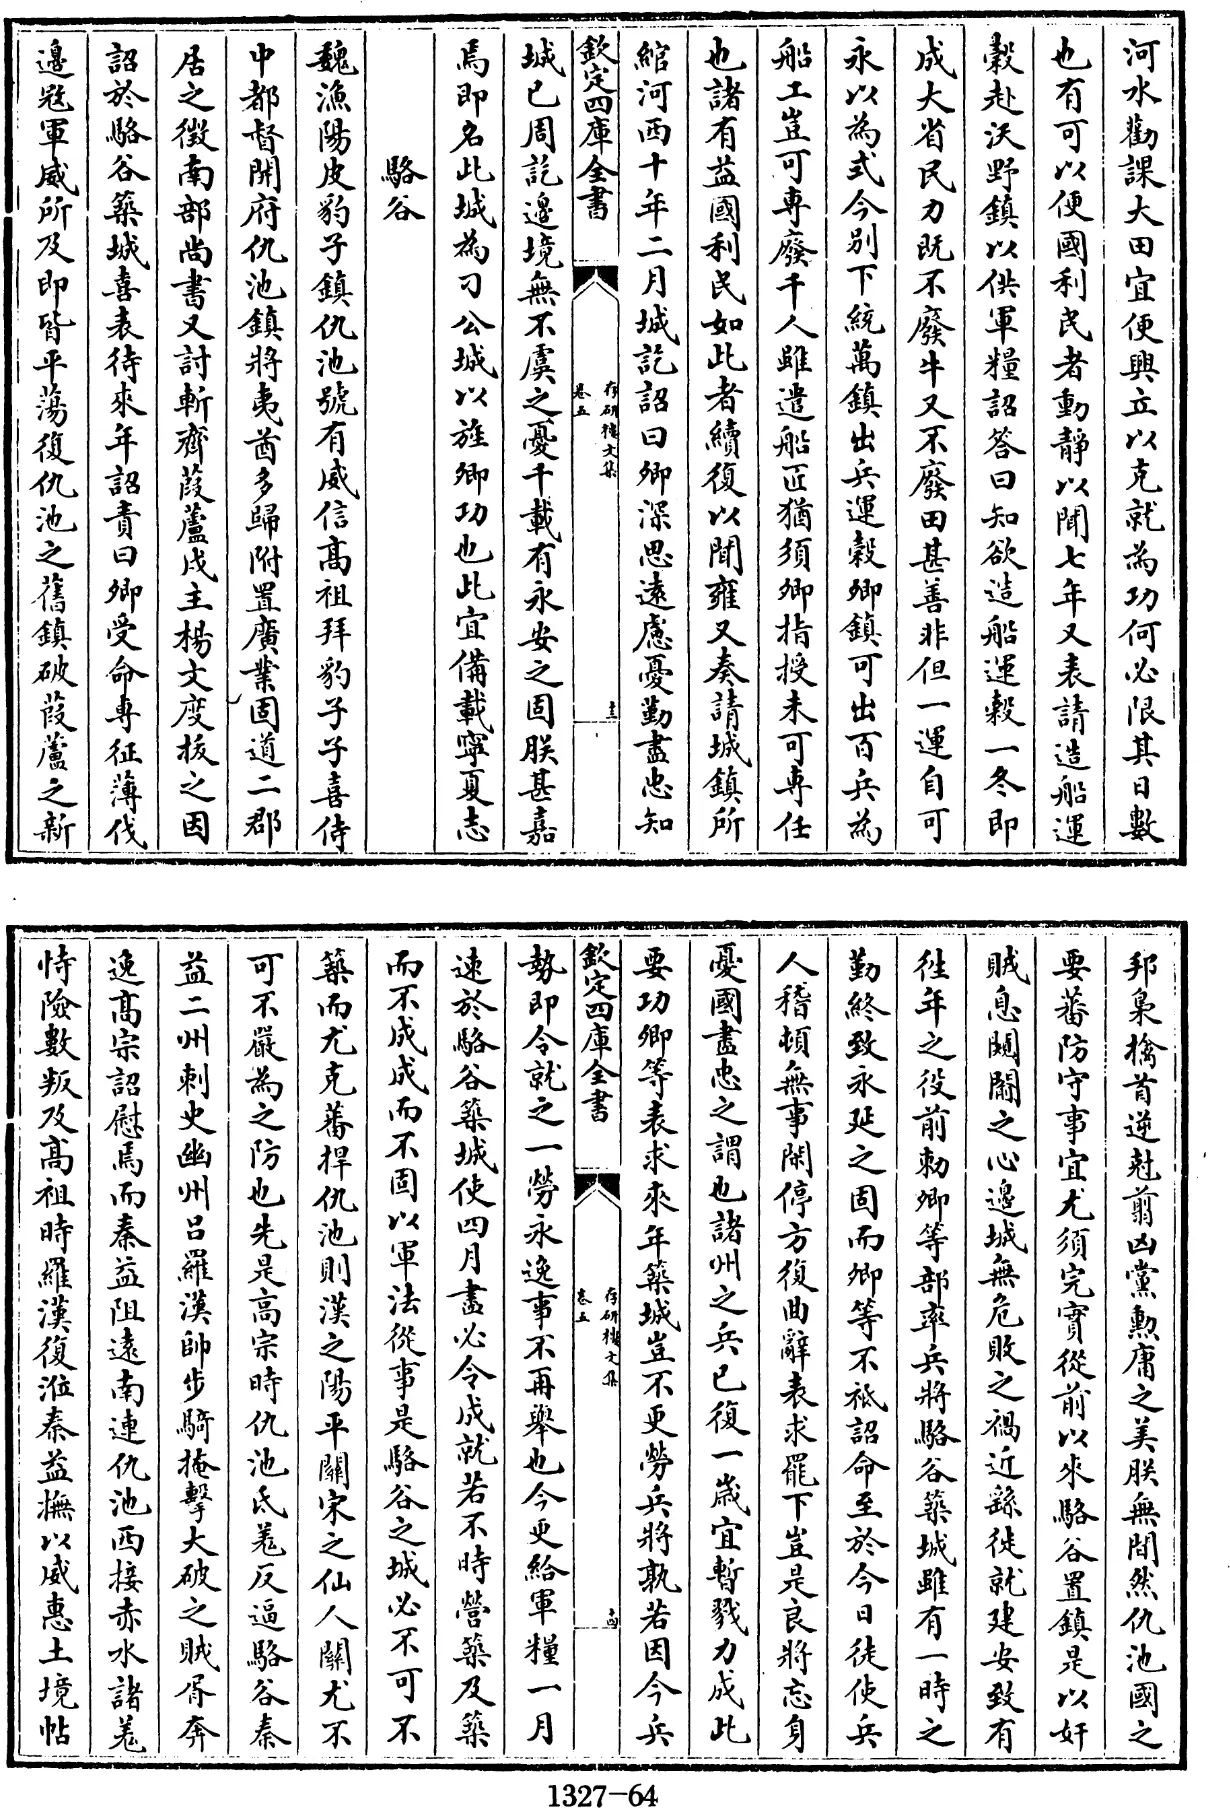 河水勸課大田宜便興立以克就為功何必限其日數
也有可以便國利民者動靜以聞七年又表請造船運
穀赴沃野鎮以供軍糧詔答曰知欲造船運穀一冬即
成大省民力既不廢牛又不廢田甚善非但一運自可
永以為式今別下統萬鎮出兵運穀卿鎮可出百兵為
船工豈可專廢千人雖遣船匠猶須卿指授未可專任
也諸有益國利民如此者續復以聞雍又奏請城鎮所
綰河西十年二月城訖詔曰卿深思遠慮憂勤盡忠知
欽定四庫全書
存研樓文集
卷五
十三
城已周訖邊境無不虞之憂千載有永安之固朕甚嘉
焉即名此城為刁公城以旌卿功也此宜備載寧夏志
駱谷
魏漁陽皮豹子鎮仇池號有威信高祖拜豹子子喜侍
中都督開府仇池鎮將夷酋多歸附置廣業固道二郡
居之徵南部尚書又討斬齊葭蘆戍主楊文度拔之因
詔於駱谷築城喜表待來年詔責曰卿受命專征薄伐
邊寇軍威所及即皆平蕩復仇池之舊鎮破葭蘆之新
邦梟擒首逆尅翦凶黨勲庸之美朕無間然仇池國之
要蕃防守事宜尤須完實從前以來駱谷置鎮是以奸
賊息闚𨵦之心邊城無危敗之禍近繇徙就建安致有
往年之役前勅卿等部率兵將駱谷築城雖有一時之
勤終致永延之固而卿等不祗詔命至於今日徒使兵
人稽頓無事閑停方復曲辭表求罷下豈是良將忘身
憂國盡忠之謂也諸州之兵已復一歲宜暫戮力成此
要功卿等表求來年築城豈不更勞兵將孰若因今兵
欽定四庫全書
存研樓文集
卷五
十四
勢即令就之一勞永逸事不再舉也今更給軍糧一月
速於駱谷築城使四月盡必令成就若不時營築及築
而不成成而不固以軍法從事是駱谷之城必不可不
築而尤克蕃捍仇池則漢之陽平關宋之仙人關尤不
可不嚴為之防也先是高宗時仇池氐羌反逼駱谷秦
益二州刺史幽州呂羅漢帥步騎掩擊大破之賊眾奔
逸高宗詔慰焉而秦益阻遠南連仇池西接赤水諸羌
恃險數叛及高祖時羅漢復涖秦益撫以威惠土境帖
1327-64